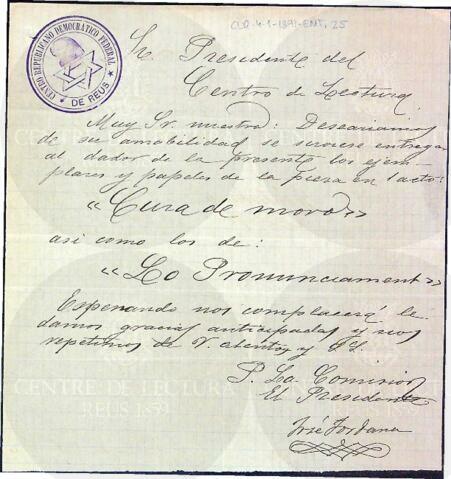 COR-4-1-1891-ENT, 25
CENTRO REPUBLICANO DEMOCRÁTICO FEDERAL
DE REUS
Sr. Presidente del
Centro de Lectura
Muy Sr. nuestro: Deseariamos
de su amabilidad se serviese entregar
al dador de la presente los ejem-
plares y papeles de la pieza en 1 acto:
«Cura de moro»
asi como los de:
«Lo Pronunciament»
Esperando nos complacerá le
damos gracias anticipadas y nos
repetimos de V. atentos y S.S.
P. La Comision
El Presidente
José Jordana
CENTRE DE LECTURA
REUS 1859